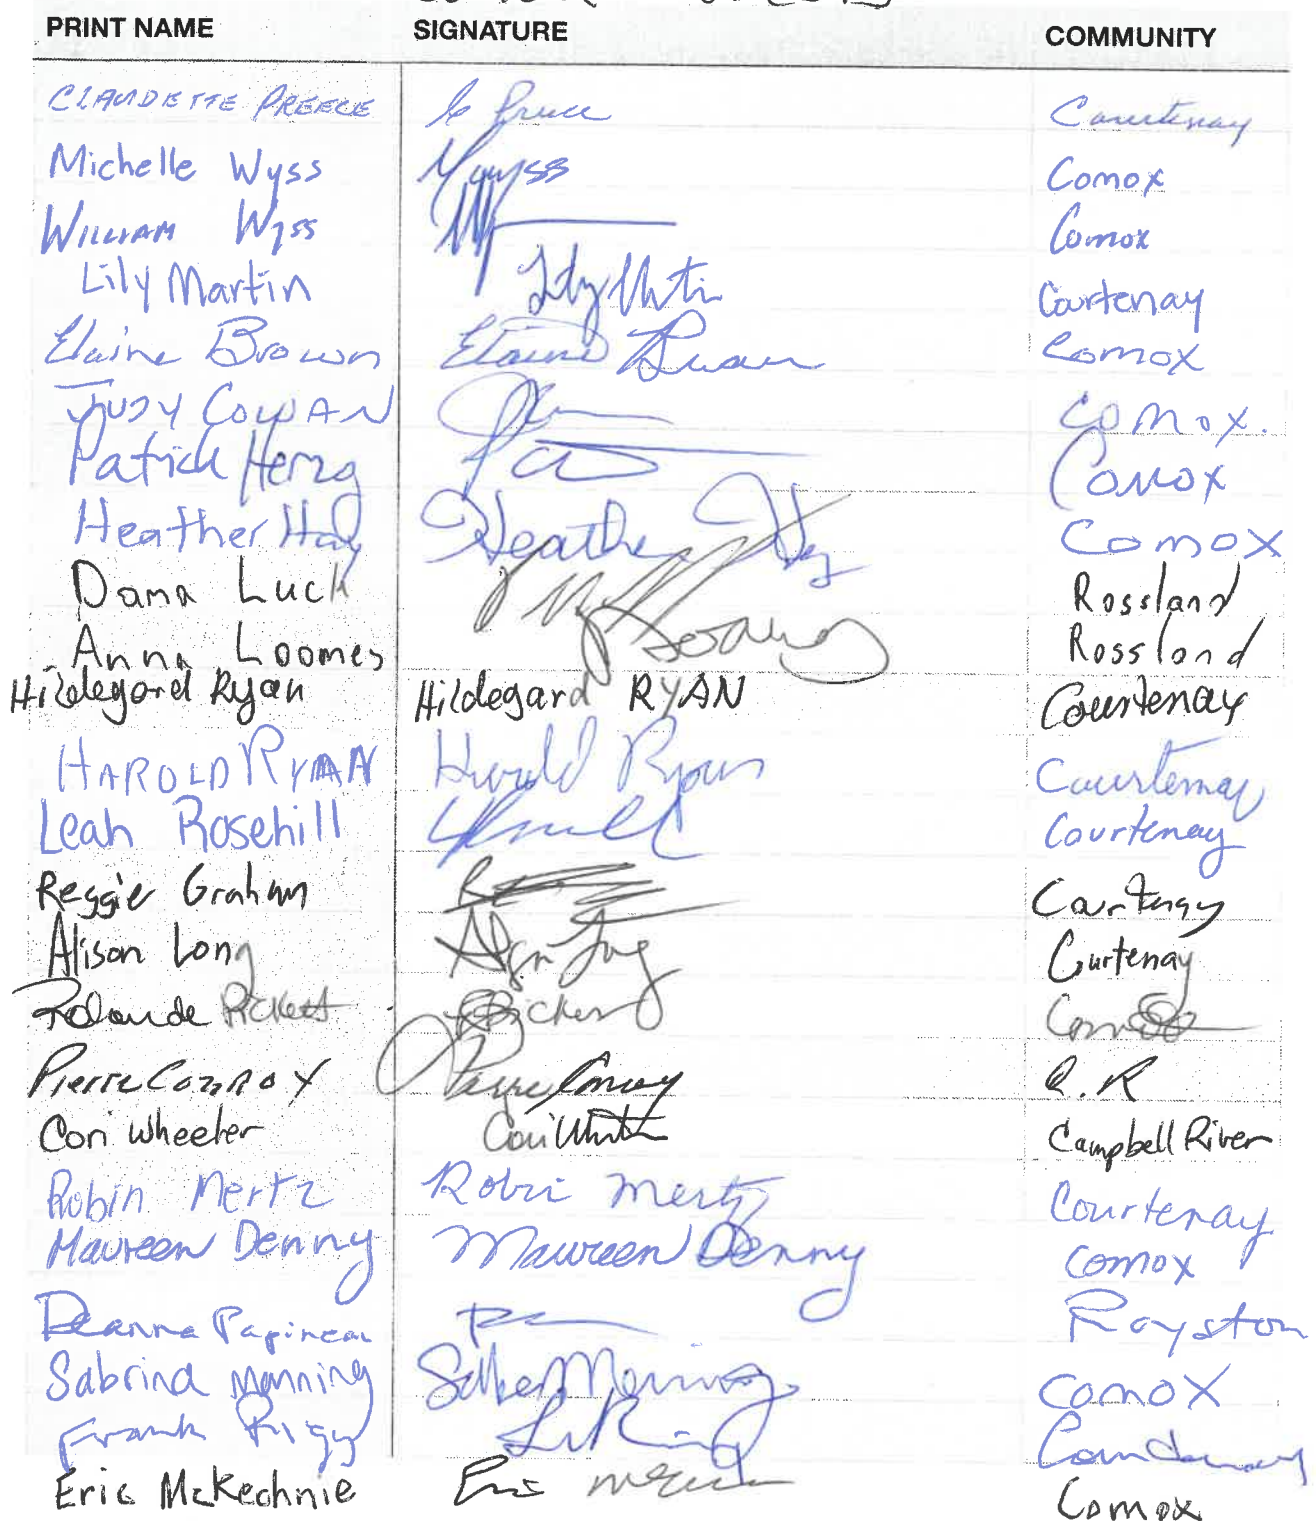 PRINT NAME SIGNATURE COMMUNITY
CLAUDETTE PREECE Courtenay
Michelle Wyss MWyss Comox
WILLIAM Wyss Comox
Lily Martin Lily Martin Courtenay
Elaine Brown Elaine Brown Comox
JUDY COWAN Comox.
Patrick Herzog Comox
Heather Hay Heather Hay Comox
Dana Luck Rossland
Anna Loomes Rossland
Hildegard Ryan Hildegard RYAN Courtenay
HAROLD RYAN Harold Ryan Courtenay
Leah Rosehill Courtenay
Reggie Graham Courtenay
Alison Long Courtenay
Rolande Pickett
Pierre Conroy Pierre Conroy
Cori Wheeler Cori Courtenay
Robin Mertz Robin Mertz Courtenay
Maureen Denny Maureen Denny Comox
Deanna Papineau Royston
Sabrina Manning Comox
Frank Courtenay
Eric McKechnie Eric Comox